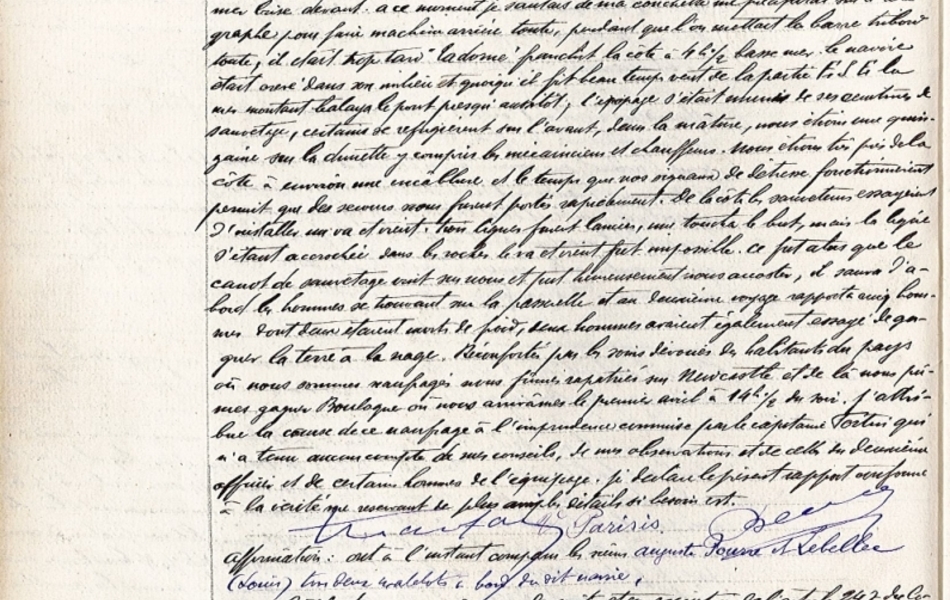 mer brise devant. a ce moment je sautais de ma couchette me précipitais sur le télé-
graphe pour faire machine arrière toute, pendant que l'on mettait la barre tribord
toute, il était trop tard "Ladomé" franchit la côte à 4h½ basse mer. le navire
était crevé dans son milieu et quoiqu'il fit beau temps vent de la partie E.S.E. la
mer montant balaya le pont presqu'aussitôt, l'équipage s'était munis de ses ceintures de
sauvetage, certains se refugièrent sur l'avant, dans la mâture, nous étions une quin-
zaine sur la dunette y compris les mécaniciens et chauffeurs. Nous étions très près de la
côte à environ une encâblure et le temps que nos signaux de détresse fonctionnèrent
permit que des secours nous furent portés rapidement. De la côte les sauveteurs essayèrent
d'installer un va et vient. trois lignes furent lancées, une toucha le but, mais la ligne
s'étant accrochée dans les roches le va et vient fut impossible. ce fut alors que le
canot de sauvetage vint sur nous et put heureusement nous accoster, il sauva d'a-
bord les hommes se trouvant sur la passerelle et au deuxième voyage rapporta cinq hom-
mes dont deux étaient morts de froid, deux hommes avaient également essayé de ga-
gner la terre à la nage. Réconfortés par les soins dévoués des habitants du pays
où nous sommes naufragés nous fûmes rapatriés sur Newcastle et de là nous pû-
mes gagner Boulogne où nous arrivâmes le premier avril à 14h½ du soir. J'attri-
bue la cause de ce naufrage à l'imprudence commise par le capitaine Fortin qui
n'a tenu aucun compte de mes conseils, de mes observations et de celles du deuxième
officier et de certains hommes de l'équipage. je déclare le présent rapport conforme
à la vérité me reservant de plus amples détails si besoin est.
Parisis
affirmation: ont à l'instant comparu les sieurs auguste Fourre et Lebellec
(Louis) tous deux matelots à bord du dit navire,